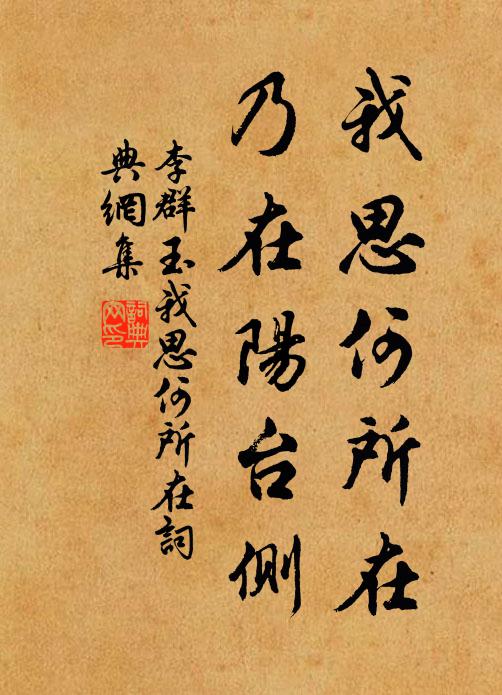 我思何所在
乃在陽台側
李群玉我思何所在詞
典網集
詞典
网印